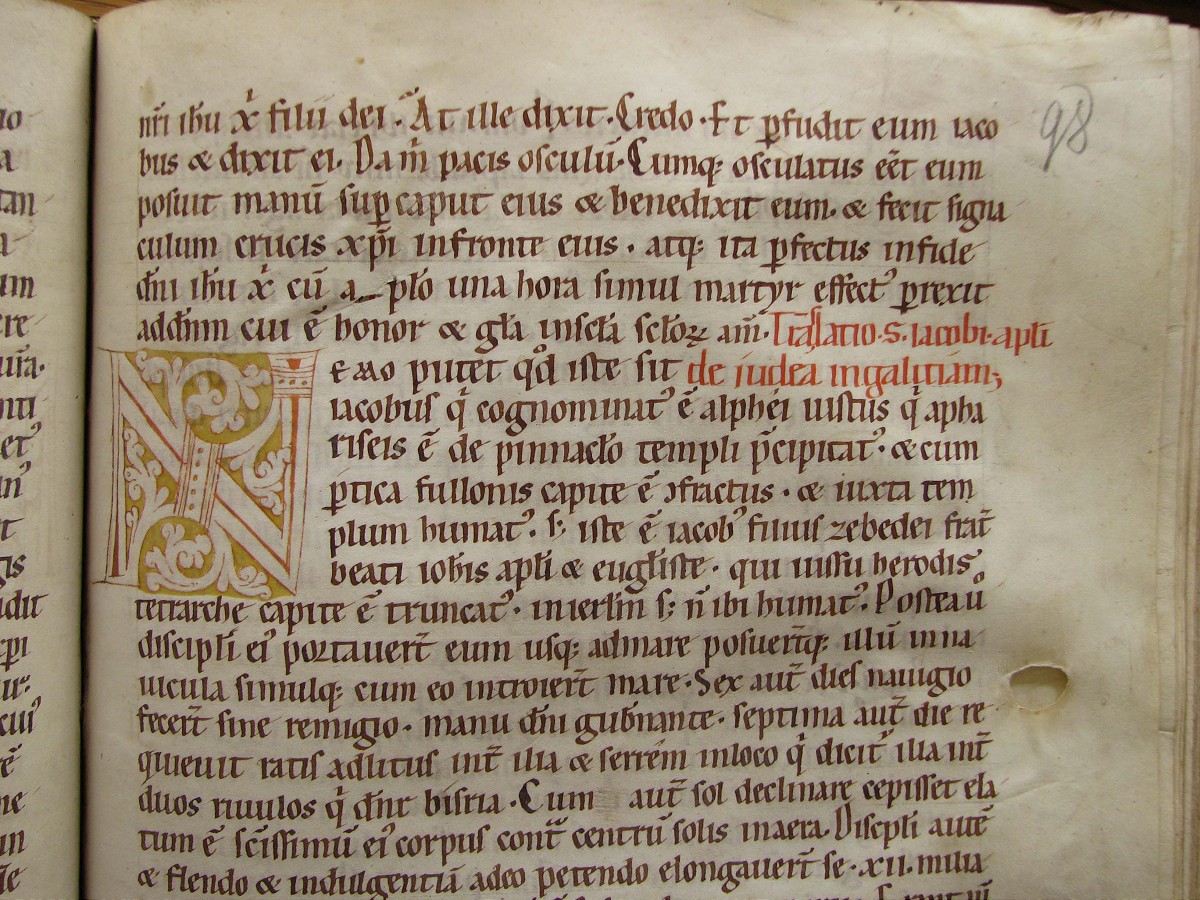 98
nr̄i ihū x̄ filii dei. At ille dixit. Credo. Et ꝑfudit eum iaco
bus & dixit ei. Da m̄ pacis osculū. Cumq; osculatus eēt eum
posuit manū suꝑ caput eius & benedixit eum. & fecit signa
culum crucis xp̄i infronte eius. atq; ita ꝑfectus infide
dn̄i ihū x̄ cū a_pło una hora simul martyr effectꝰ ꝑrexit
addn̄m cui ē honor & gła insćła scłoꝝ am̄. Traslatio. s. iacobi. apłi
NEMO putet qd̄ iste sit de iudea ingalitiam;
iacobus q̄ cognominatꝰ ē alphei uistus q̄ apha
riseis ē de pinnacło templi p̄cipitatꝰ. & cum
ꝑtica fullonis capite ē ɔfractus. & iuxta tem
plum humatꝰ. s; iste ē iacobꝰ filius zebedei frat̄
beati ioh̄is apłi & eugłiste. qui iussu herodis
tetrarche capite ē truncatꝰ. inierłm s; n̄ ibi humatꝰ. Postea ů
discipłi eiꝰ portauert̄ eum usq; admare posuert̄q; illū inna
uicula simulq; cum eo introiert̄ mare. Sex aut̄ dies nauigio
fecert̄ sine remigio. manu dn̄i gub̄nante. septima aut̄ die re
quieuit ratis adlitus int̄ ilia & serrem inloco q̄ dicitꝰ ilia int̄
duos riuulos q̄ dn̄r bisria. Cum aut̄ sol declinare cepisset ela
tum ē sc̄issimū eiꝰ corpus cont̄ centrū solis inaera. Discipłi autē
& flendo & indulgentiā adeo petendo elongauert̄ se. xii. milia